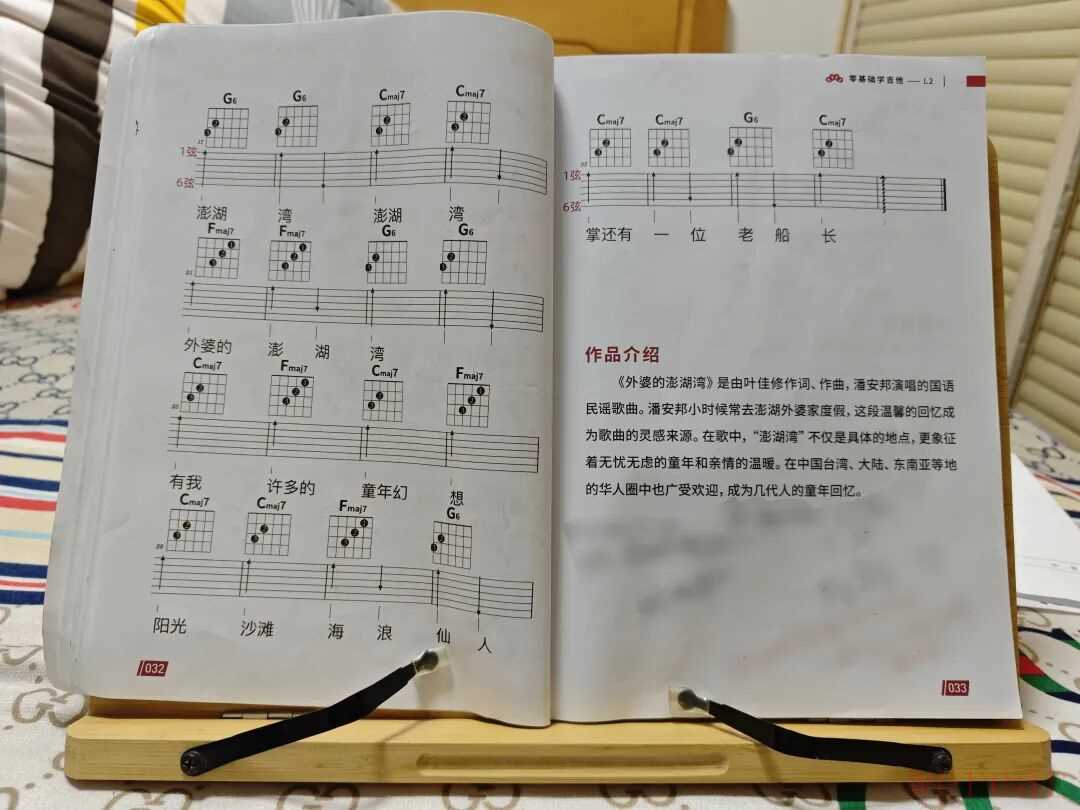 G6 G6 Cmaj7 Cmaj7
1弦
6弦
澎湖 湾 澎湖 湾
Fmaj7 Fmaj7 G6 G6
外婆的 澎 湖 湾
Cmaj7 Fmaj7 Cmaj7 Fmaj7
有我 许多的 童年幻 想
Cmaj7 Cmaj7 Fmaj7 G6
阳光 沙滩 海 浪 仙 人
032
零基础学吉他 — L2
Cmaj7 Cmaj7 G6 Cmaj7
1弦
6弦
掌还有 一 位 老 船 长
作品介绍
《外婆的澎湖湾》是由叶佳修作词、作曲，潘安邦演唱的国语
民谣歌曲。潘安邦小时候常去澎湖外婆家度假，这段温馨的回忆成
为歌曲的灵感来源。在歌中，“澎湖湾”不仅是具体的地点，更象征
着无忧无虑的童年和亲情的温暖。在中国台湾、大陆、东南亚等地
的华人圈中也广受欢迎，成为几代人的童年回忆。
033